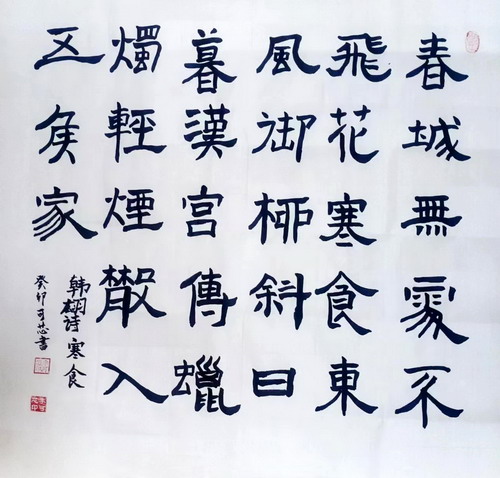 春城無處不
飛花寒食東
風御柳斜日
暮漢宮傳蠟
燭輕煙散入
五侯家
韩翃诗寒食
癸卯可芯書